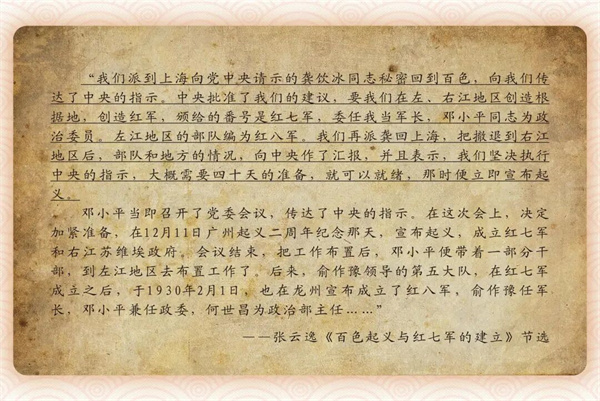 “我们派到上海向党中央请示的龚饮冰同志秘密回到百色，向我们传
达了中央的指示。中央批准了我们的建议，要我们在左、右江地区创造根
据地，创造红军，颁给的番号是红七军，委任我当军长，邓小平同志为政
治委员。左江地区的部队编为红八军。我们再派龚回上海，把撤退到右江
地区后，部队和地方的情况，向中央作了汇报，并且表示，我们坚决执行
中央的指示，大概需要四十天的准备，就可以就绪，那时便立即宣布起
义。
邓小平当即召开了党委会议，传达了中央的指示。在这次会上，决定
加紧准备，在12月11日广州起义二周年纪念那天，宣布起义，成立红七军
和右江苏维埃政府。会议结束，把工作布置后，邓小平便带着一部分干
部，到左江地区去布置工作了。后来，俞作豫领导的第五大队，在红七军
成立之后，于1930年2月1日，也在龙州宣布成立了红八军，俞作豫任军
长，邓小平兼任政委，何世昌为政治部主任……”
——张云逸《百色起义与红七军的建立》节选